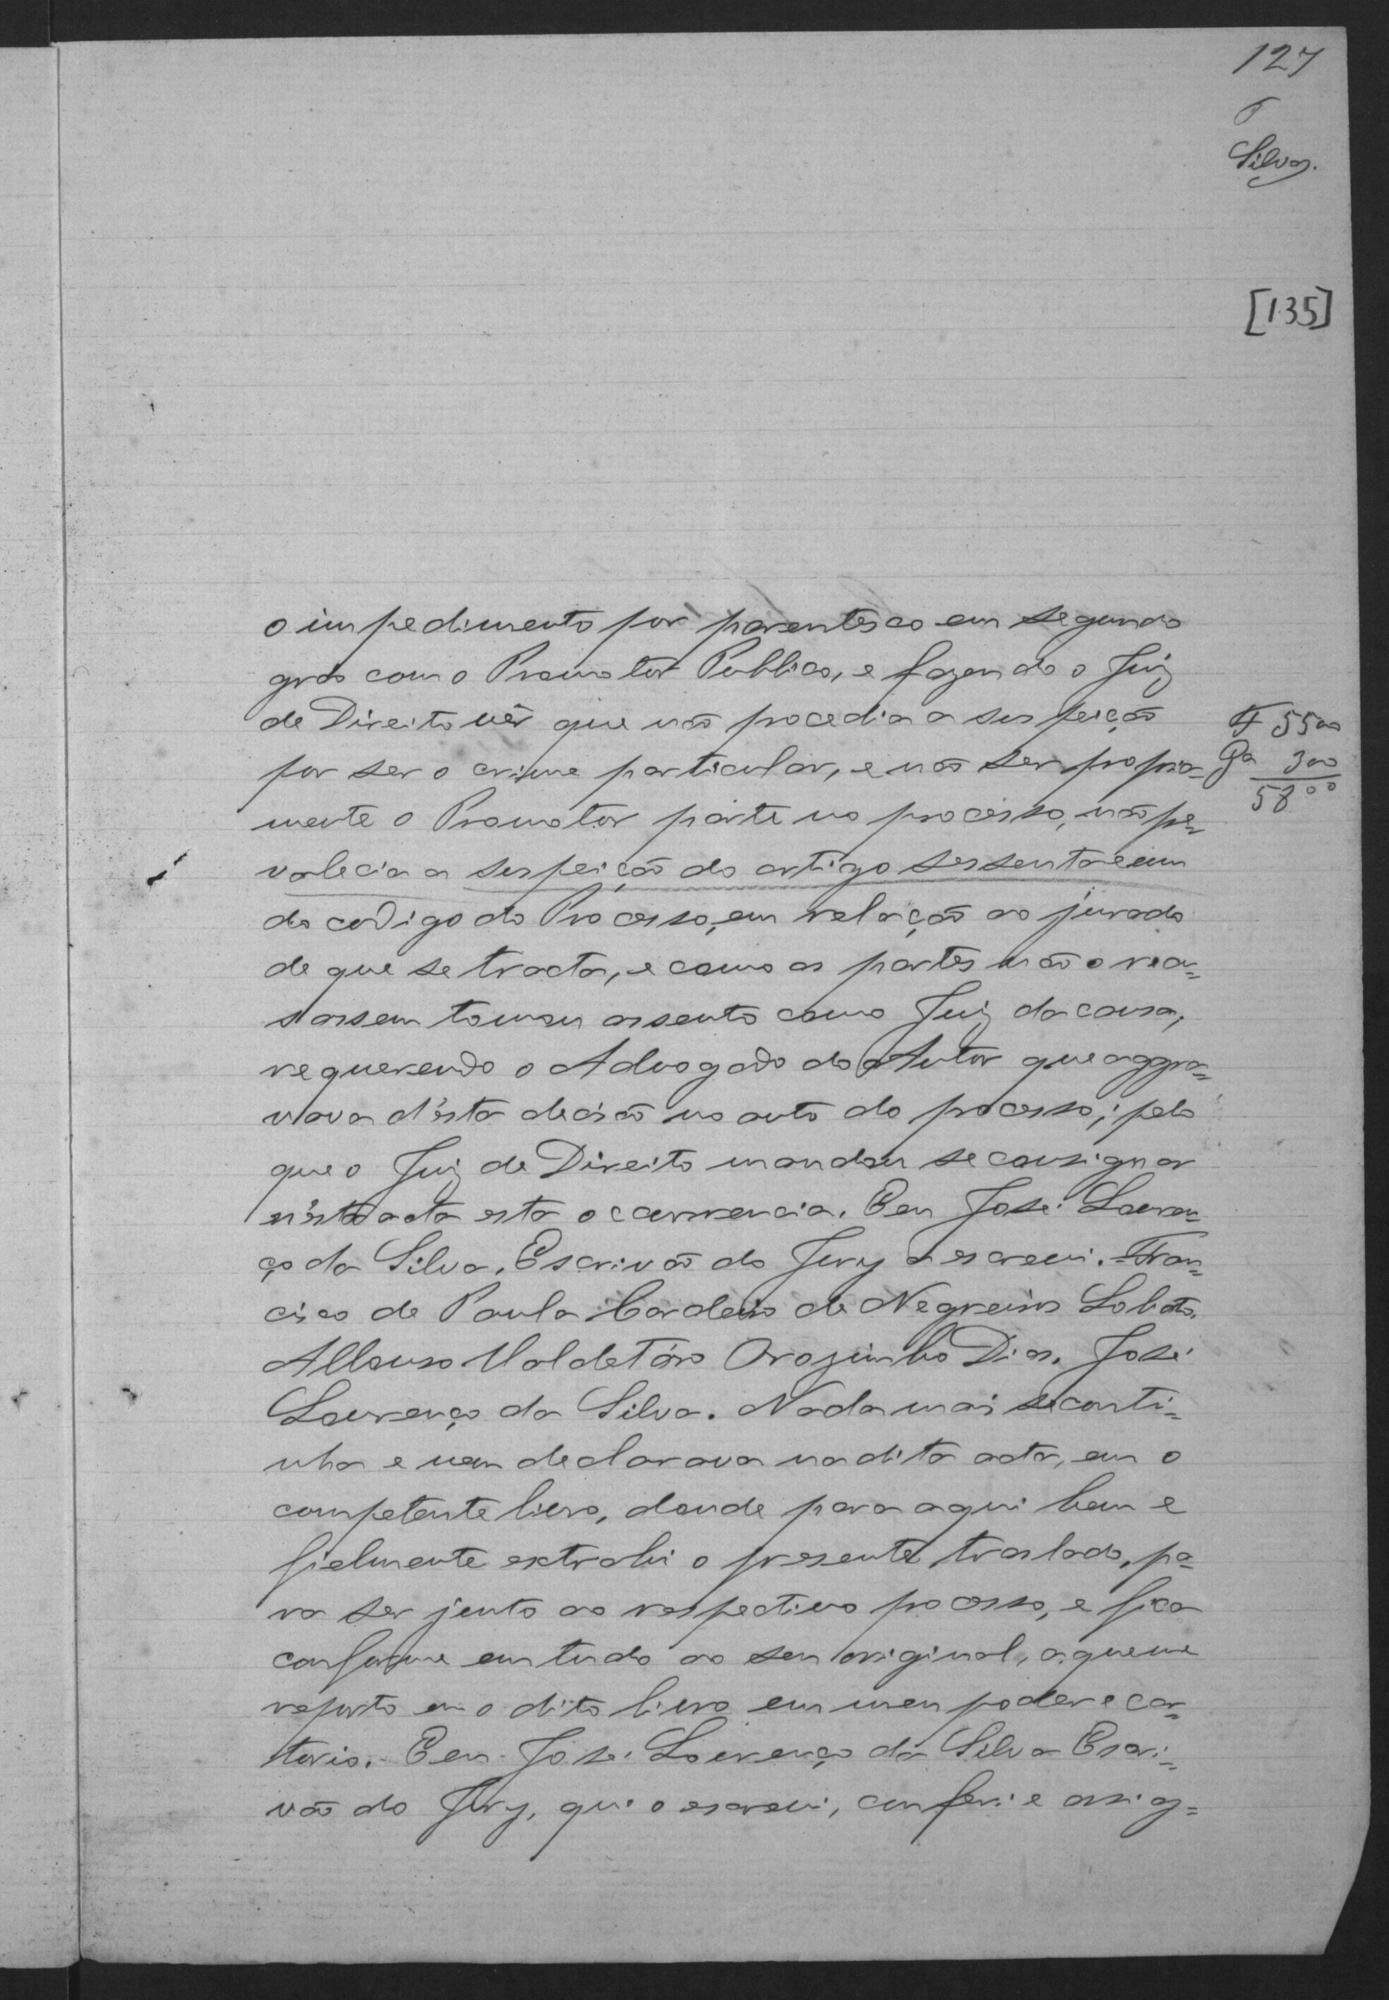 127
Silva.
[135]
o impedimento por parentesco em segundo
gráo com o Promotor Publico, e fazendo o Juiz
de Direito vêr que não procedia a suspeição
por ser o crime particular, e não ser propria=
mente o Promotor parte no processo, não pre=
valecia a suspeição do artigo sessenta e um
do codigo do Processo, em relação ao jurado
de que se tracta, e como as partes não o recu=
sassem tomou assento como Juiz da causa,
requerendo o Advogado do Autor que aggra=
vava d'esta decisão no auto do processo; pelo
que o Juiz de Direito mandou se consignar
n'esta acta esta occurrencia. Eu José Louren=
ço da Silva, Escrivão do Jury a escrevi. = Fran=
cisco de Paula Cordeiro de Negreiros Lobato.
Affonso Valdetáro Orozimbo Dias. José
Lourenço da Silva. Nada mais se conti=
nha e nem declarava na dita acta, em o
competente livro, donde para aqui bem e
fielmente extrahi o presente traslado, pa=
ra ser junto ao respectivo processo, e fica
conforme em tudo ao seu original, a que me
reporto em o dito livro em meu poder e car=
torio. Eu José Lourenço da Silva Escri=
vão do Jury, que o escrevi, conferi e assig=
T 5500
Ra 300
5800